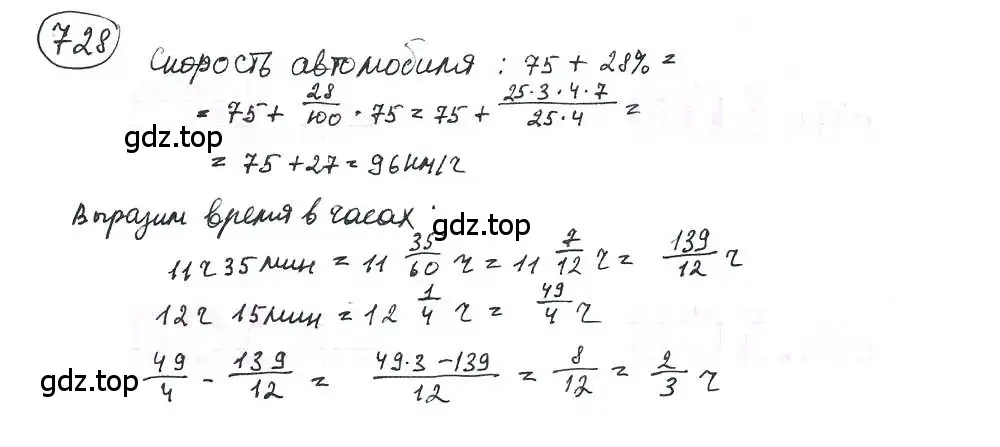 728
Скорость автомобиля : 75 + 28% =
= 75 + 28/100 · 75 = 75 + 25·3·4·7/25·4 =
gdz.top
= 75 + 27 = 96 км/ч
Выразим время в часах :
gdz.top
11ч 35 мин = 11 35/60 ч = 11 7/12 ч = 139/12 ч
12ч 15 мин = 12 1/4 ч = 49/4 ч
49/4 - 139/12 = 49·3-139/12 = 8/12 = 2/3 ч
gdz.top